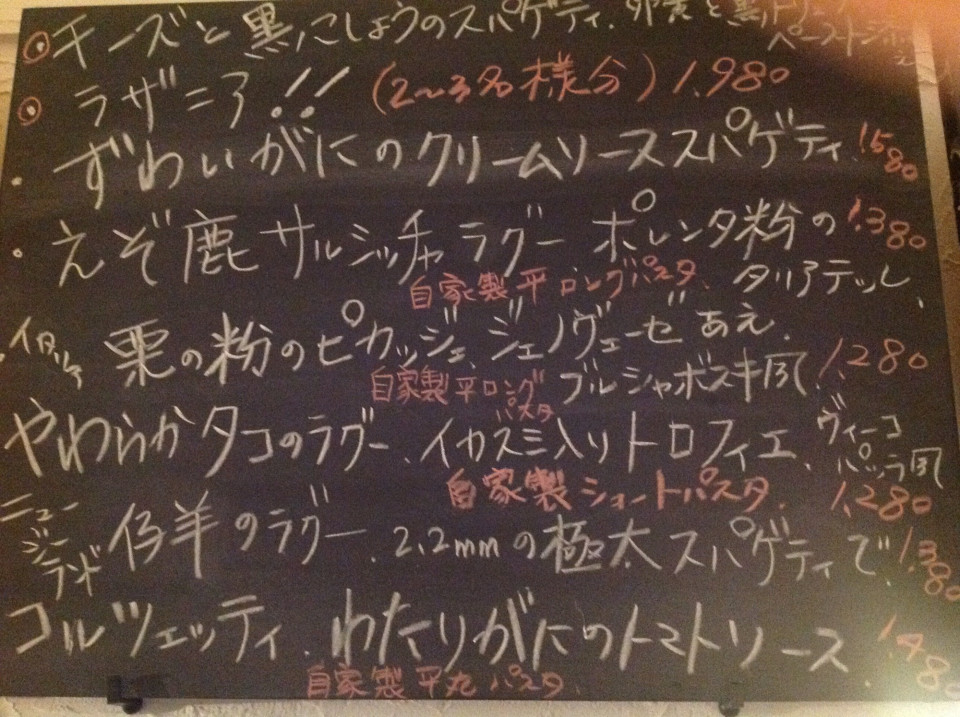 チーズと黒こしょうのスパゲティ.
ペースト添え
ラザニア!! (2〜3名様分) 1.980
・ずわいがにのクリームソーススパゲティ. 1.580
・えぞ鹿サルシッチャラグー ポレンタ粉の 1.380
自家製平ロングパスタ. タリアテッレ、
栗の粉のピカッジェ、ジェノヴェーゼあえ.
自家製平ロングパスタ ブルシャボスキ風. 1.280
やわらかタコのラグー. イカスミ入りトロフィエ. ヴィーコパッラ風
自家製ショートパスタ. 1.280
ニュージーランド仔羊のラグー. 2.2mmの極太スパゲティで、1.380
コルツェッティ. わたりがにのトマトソース 1.480
自家製平丸パスタ.